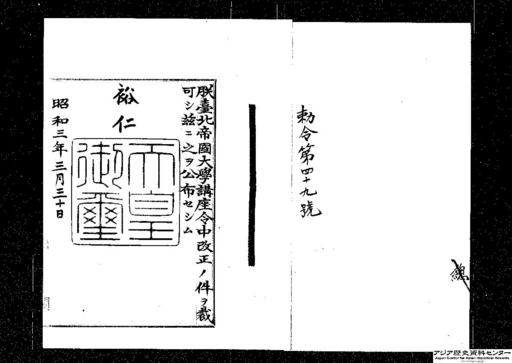 勅令第四十九號
朕臺北帝國大學講座令中改正ノ件ヲ裁
可シ茲ニ之ヲ公布セシム
裕仁
天皇
御璽
昭和三年三月三十日
アジア歴史資料センター
Japan Center for Asian Historical Records